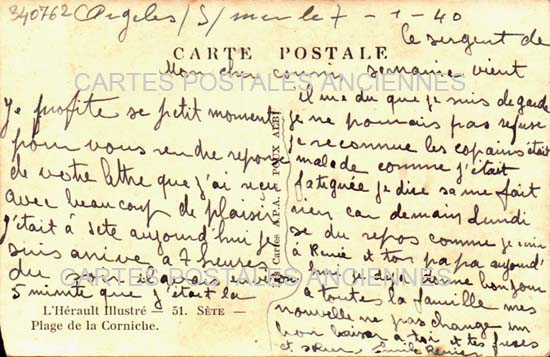 340762
Argeles/S/mer le 7-1-40
CARTE POSTALE
CARTES POSTALES ANCIENNES
Mon cher cousin
Je profite se petit moment
pour vous rendre reponse
de votre lettre que j'ai reçu
avec beaucoup de plaisir
j'étais à sète aujourd'hui je
suis arrivé a 7 heures
du soir
5 minute que j'était la
L'Hérault Illustré — 51. SÈTE —
Plage de la Corniche.
Les Cartes A.P.A. POUX ALBI
le sergent de
semaine vient
il me du que je suis de garde
je ne pourrais pas refusé
je reconnue les copains était
malade comme j'était
fatiguée je dise sa me fait
rien car demain lundi
se du repos comme je suis
à Renée et ton papa aujourd'
CARTES POSTALES ANCIENNES
bonjour
à toutes la famille mes
nouvelle ne pas change un
bon baiser a toi et tes frères
et sœurs Emile